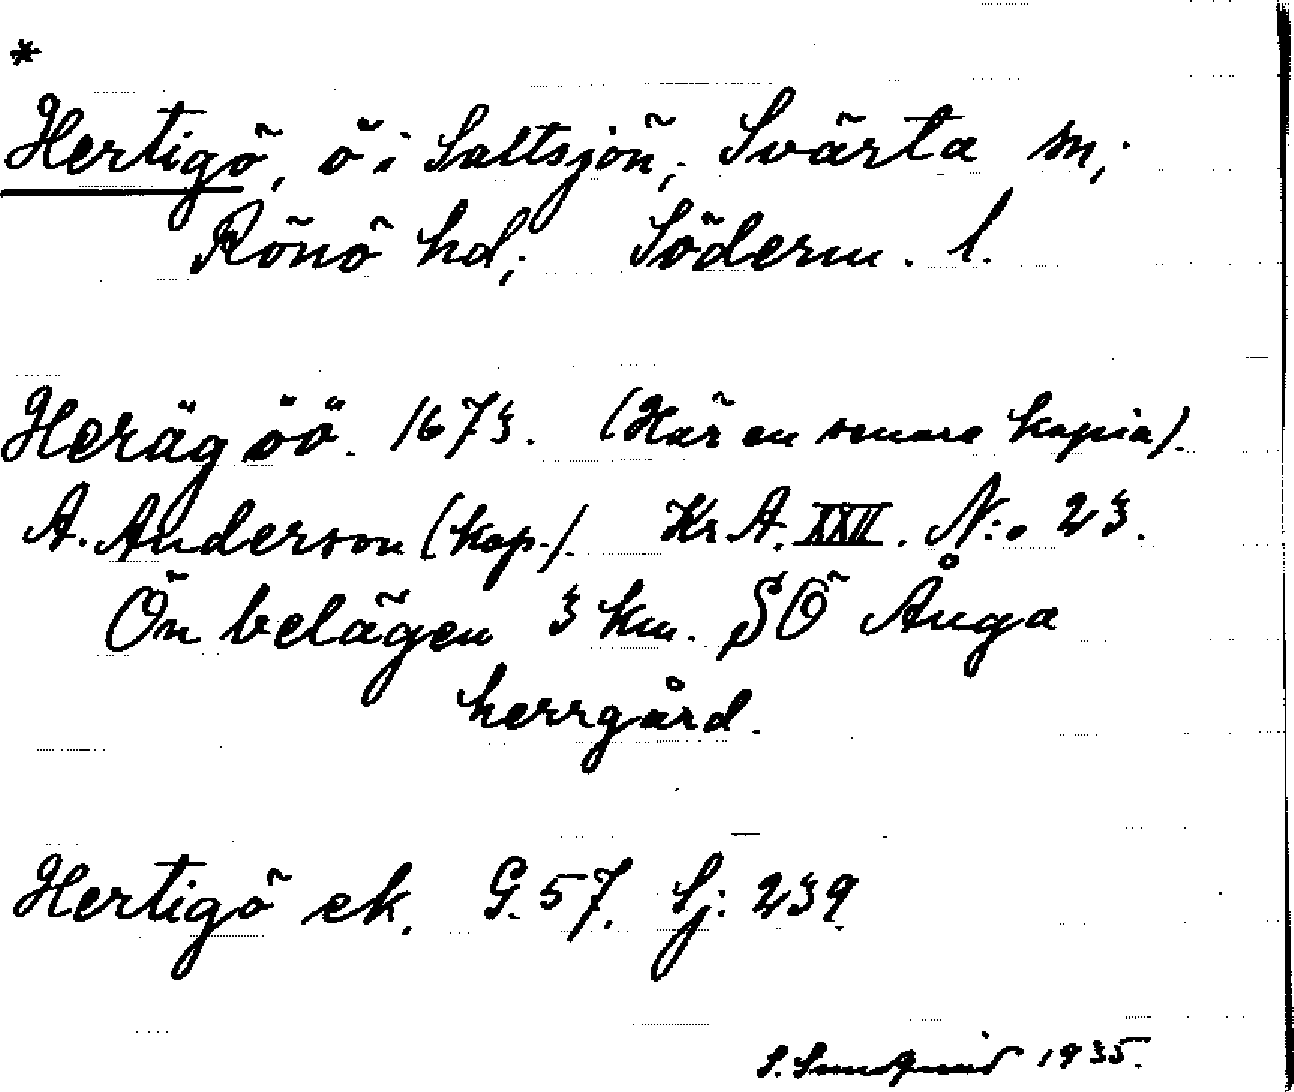 *
Hertigö, ö i Saltsjön, Svärta sn,
Rönö hd, Söderm. l.
Herägöö. 1673. (Här en senare kopia).
A. Anderson (kop.). Kr A. XXII. N:o 23.
Ön belägen 3 km. SÖ Ånga
herrgård.
Hertigö ek. G. 57. Sj: 239
S. Sundquist 1935.